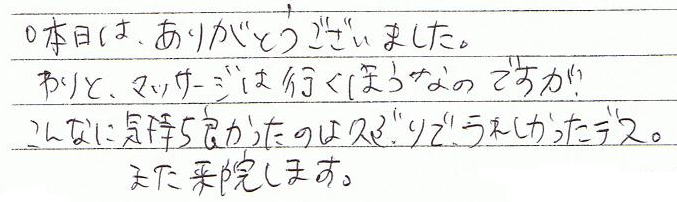 ○本日は、ありがとうございました。
わりと、マッサージは行くほうなのですが、
こんなに気持ち良かったのは久びりで、うれしかったデス。
また来院します。